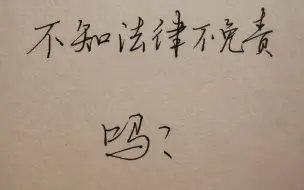 不知法律不免责
吗？